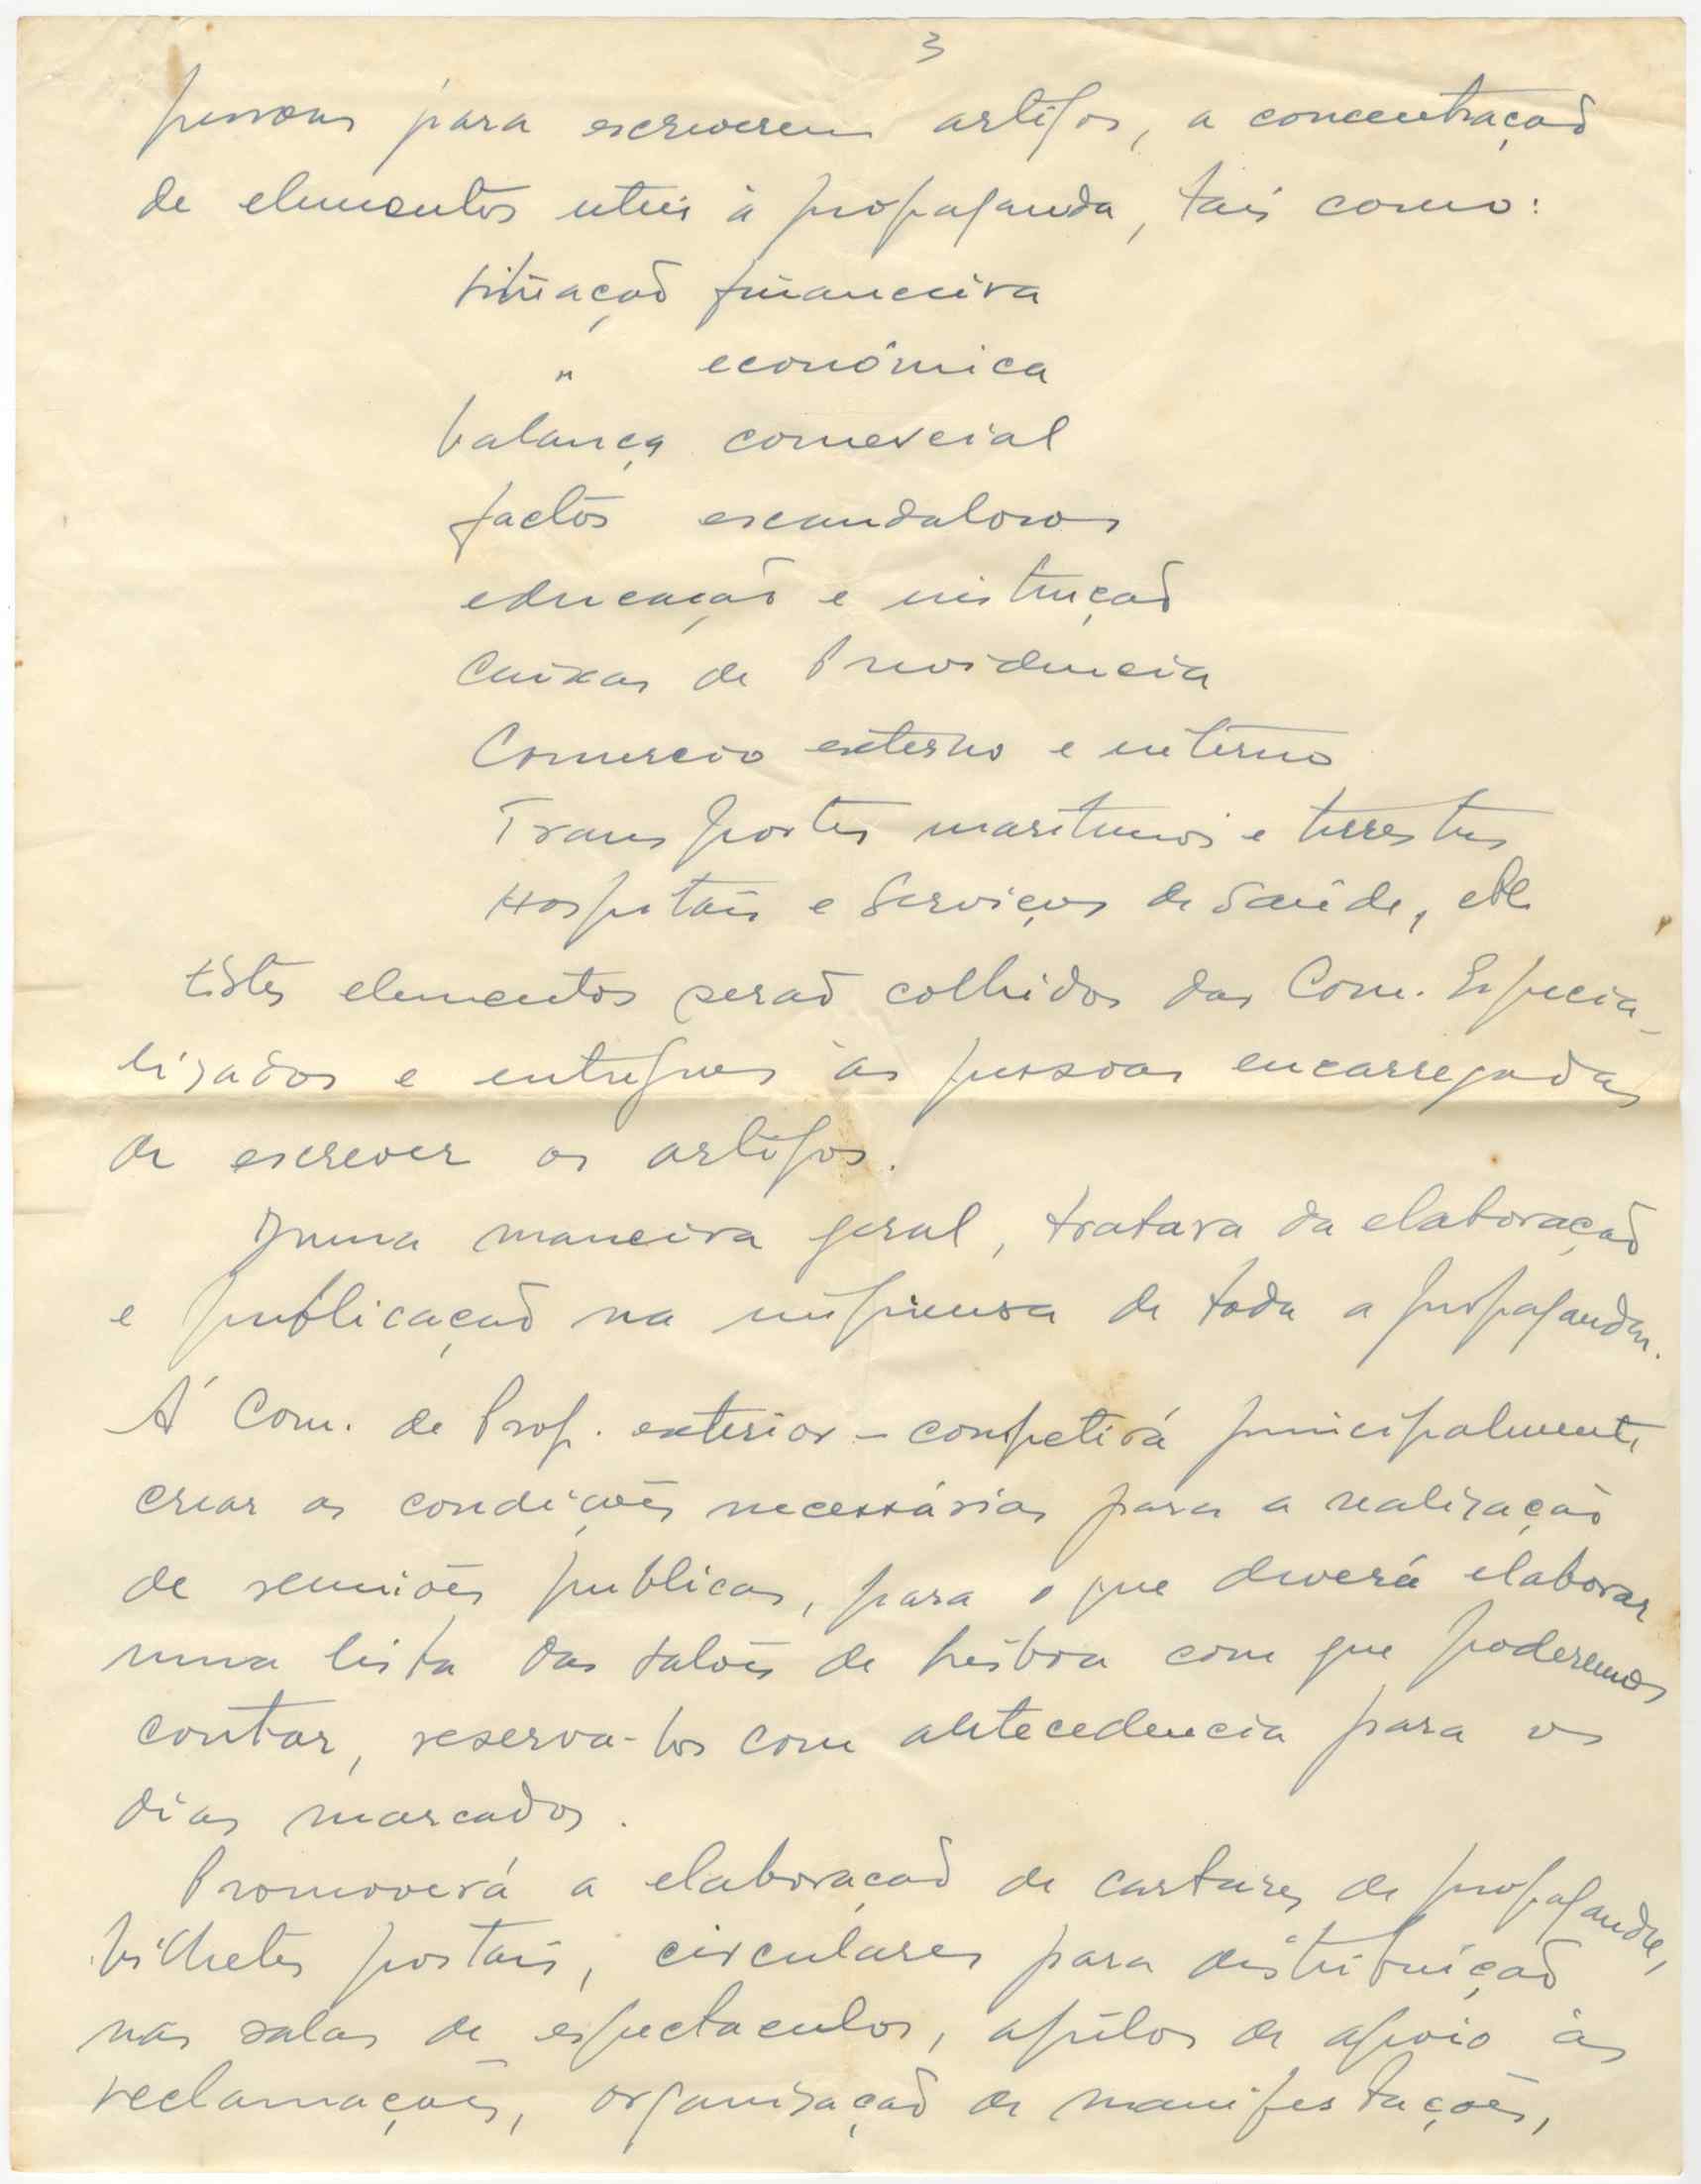 3
pessoas para escreverem artigos, a concentração
de elementos uteis à propaganda, tais como:
situação financeira
" económica
balança comercial
factos escandalosos
educação e instrução
Caixas de Previdencia
Comercio externo e interno
Transportes maritimos e terrestres
Hospitais e Serviços de Saúde, etc
Estes elementos serão colhidos das Com. Especia-
lizados e entregues às pessoas encarregadas
de escrever os artigos.
Duma maneira geral, tratara da elaboração
e publicação na imprensa de toda a propaganda.
Á Com. de Prop. exterior - competirá principalmente
criar as condições necessárias para a realização
de reuniões publicas, para o que deverá elaborar
uma lista dos salões de Lisboa com que poderemos
contar, reserva-los com antecedencia para os
dias marcados.
Promoverá a elaboração de cartazes de propaganda,
bilhetes postais, circulares para distribuição
nas salas de espectaculos, apêlos de apoio às
reclamações, organização de manifestações,